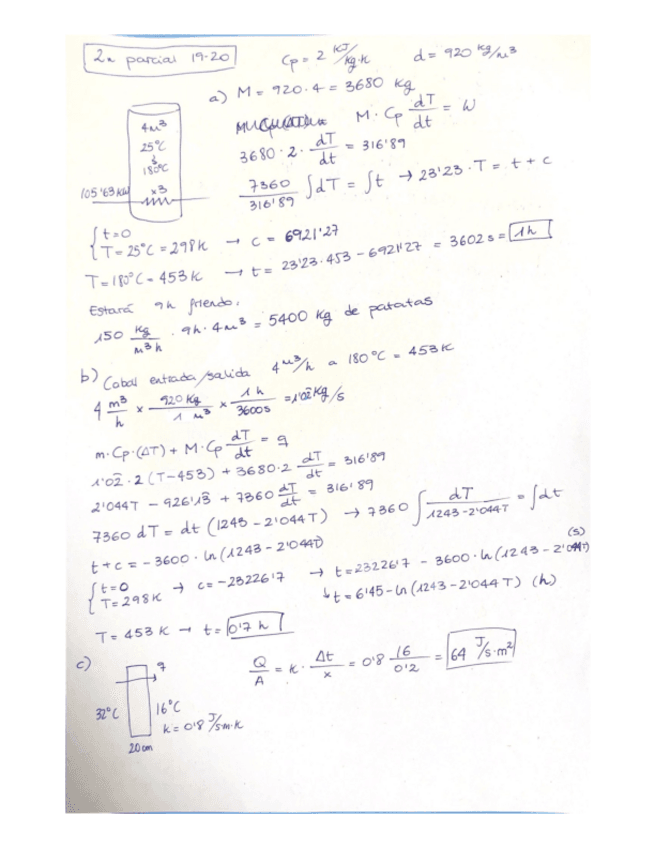 2n parcial 19-20
Cp = 2 KJ/kg·K d = 920 kg/m³
a) M = 920·4 = 3680 kg
4m³
25°C
↓
180°C
x3
105'63 KW
M·Cp dT/dt = W
3680·2· dT/dt = 316'89
7360/316'89 ∫dT = ∫t → 23'23·T = t + c
{ t=0
{ T=25°C = 298K → c = 6921'27
T=180°C = 453K → t = 23'23·453 - 6921'27 = 3602 s = 1h
Estará 9h friendo,
150 kg/m³h · 9h·4m³ = 5400 kg de patatas
b) Cabal entrada/salida 4 m³/h a 180°C = 453K
4 m³/h × 920 kg/1 m³ × 1h/3600s = 1'02 kg/s
m·Cp·(ΔT) + M·Cp dT/dt = q
1'02·2(T-453) + 3680·2 dT/dt = 316'89
2'044T - 926'13 + 7360 dT/dt = 316'89
7360 dT = dt (1243 - 2'044T) → 7360 ∫ dT/(1243-2'044T) = ∫dt
t + c = -3600·ln(1243-2'044T)
{ t=0
{ T=298K → c = -23226'7 → t = 23226'7 - 3600·ln(1243-2'044T) (s)
↳ t = 6'45 - ln(1243-2'044T) (h)
T = 453K → t = 0'7 h
c)
q
32°C
16°C
k = 0'8 J/sm·K
20cm
Q/A = k· Δt/x = 0'8 16/0'2 = 64 J/s·m²